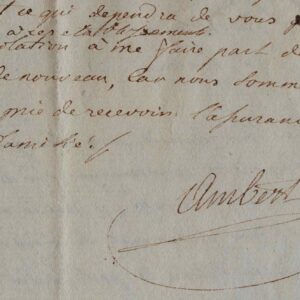 t ce qui dependra de vous p
à cep établissement.
lotation à me faire part d
de nouveau, Car nous somm
mie de recevoir l'apurance
d'amitié.
Ambert